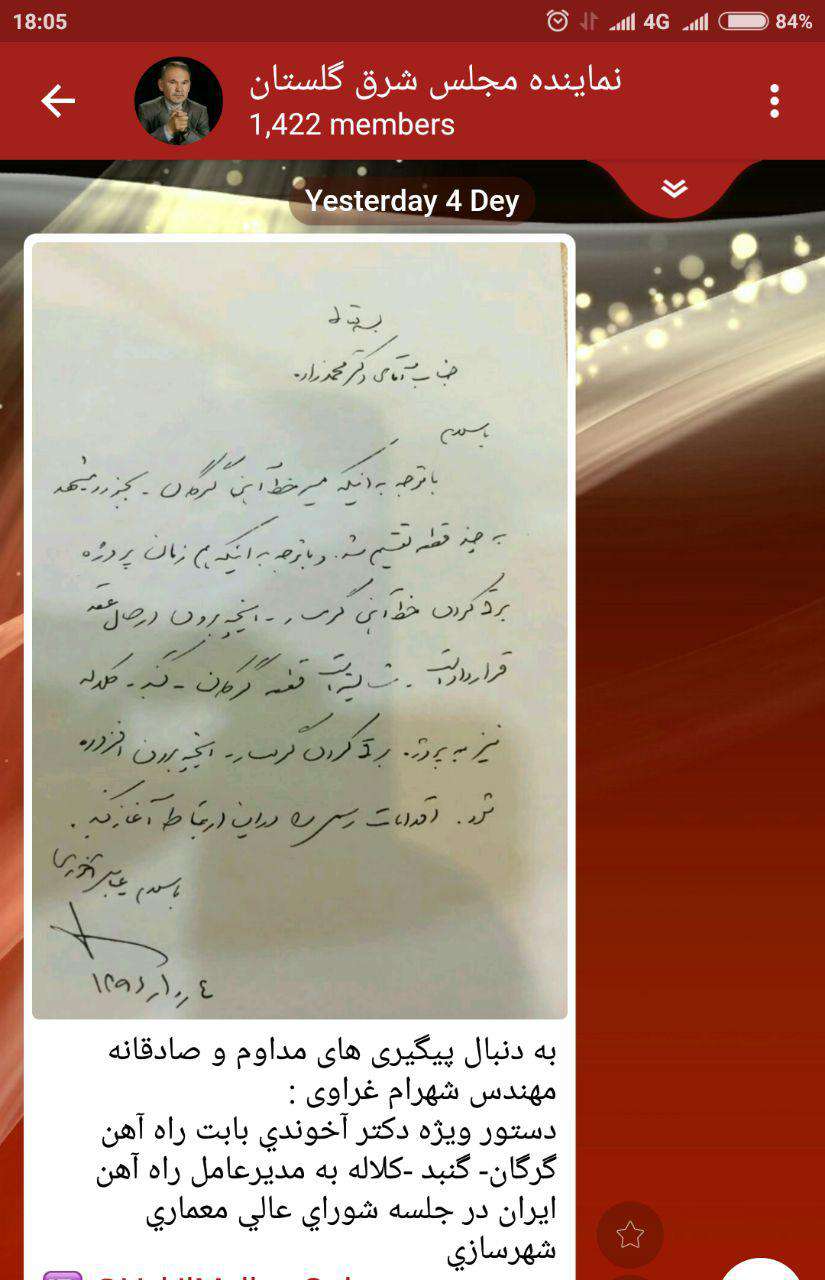 18:05
4G
84%
نماینده مجلس شرق گلستان
1,422 members
Yesterday 4 Dey
جناب آقای دکتر محمدزاده
باسلام
باتوجه به اینکه مسیر خط آهن گرگان - بجنورد - مشهد
به چند قطعه تقسیم شد. و باتوجه به اینکه هم زمان پروژه
برقی کردن خط آهن گرمسار - اینچه برون در حال عقد
قرارداد است. شایسته است قطعه گرگان - گنبد - کلاله
نیز به پروژه برقی کردن گرمسار - اینچه برون افزوده
شود. اقدامات رسمی را در این ارتباط آغاز کنید.
باسلام عباس آخوندی
به دنبال پیگیری های مداوم و صادقانه
مهندس شهرام غراوی :
دستور ویژه دکتر آخوندي بابت راه آهن
گرگان- گنبد -کلاله به مدیرعامل راه آهن
ایران در جلسه شوراي عالي معماري
شهرسازي